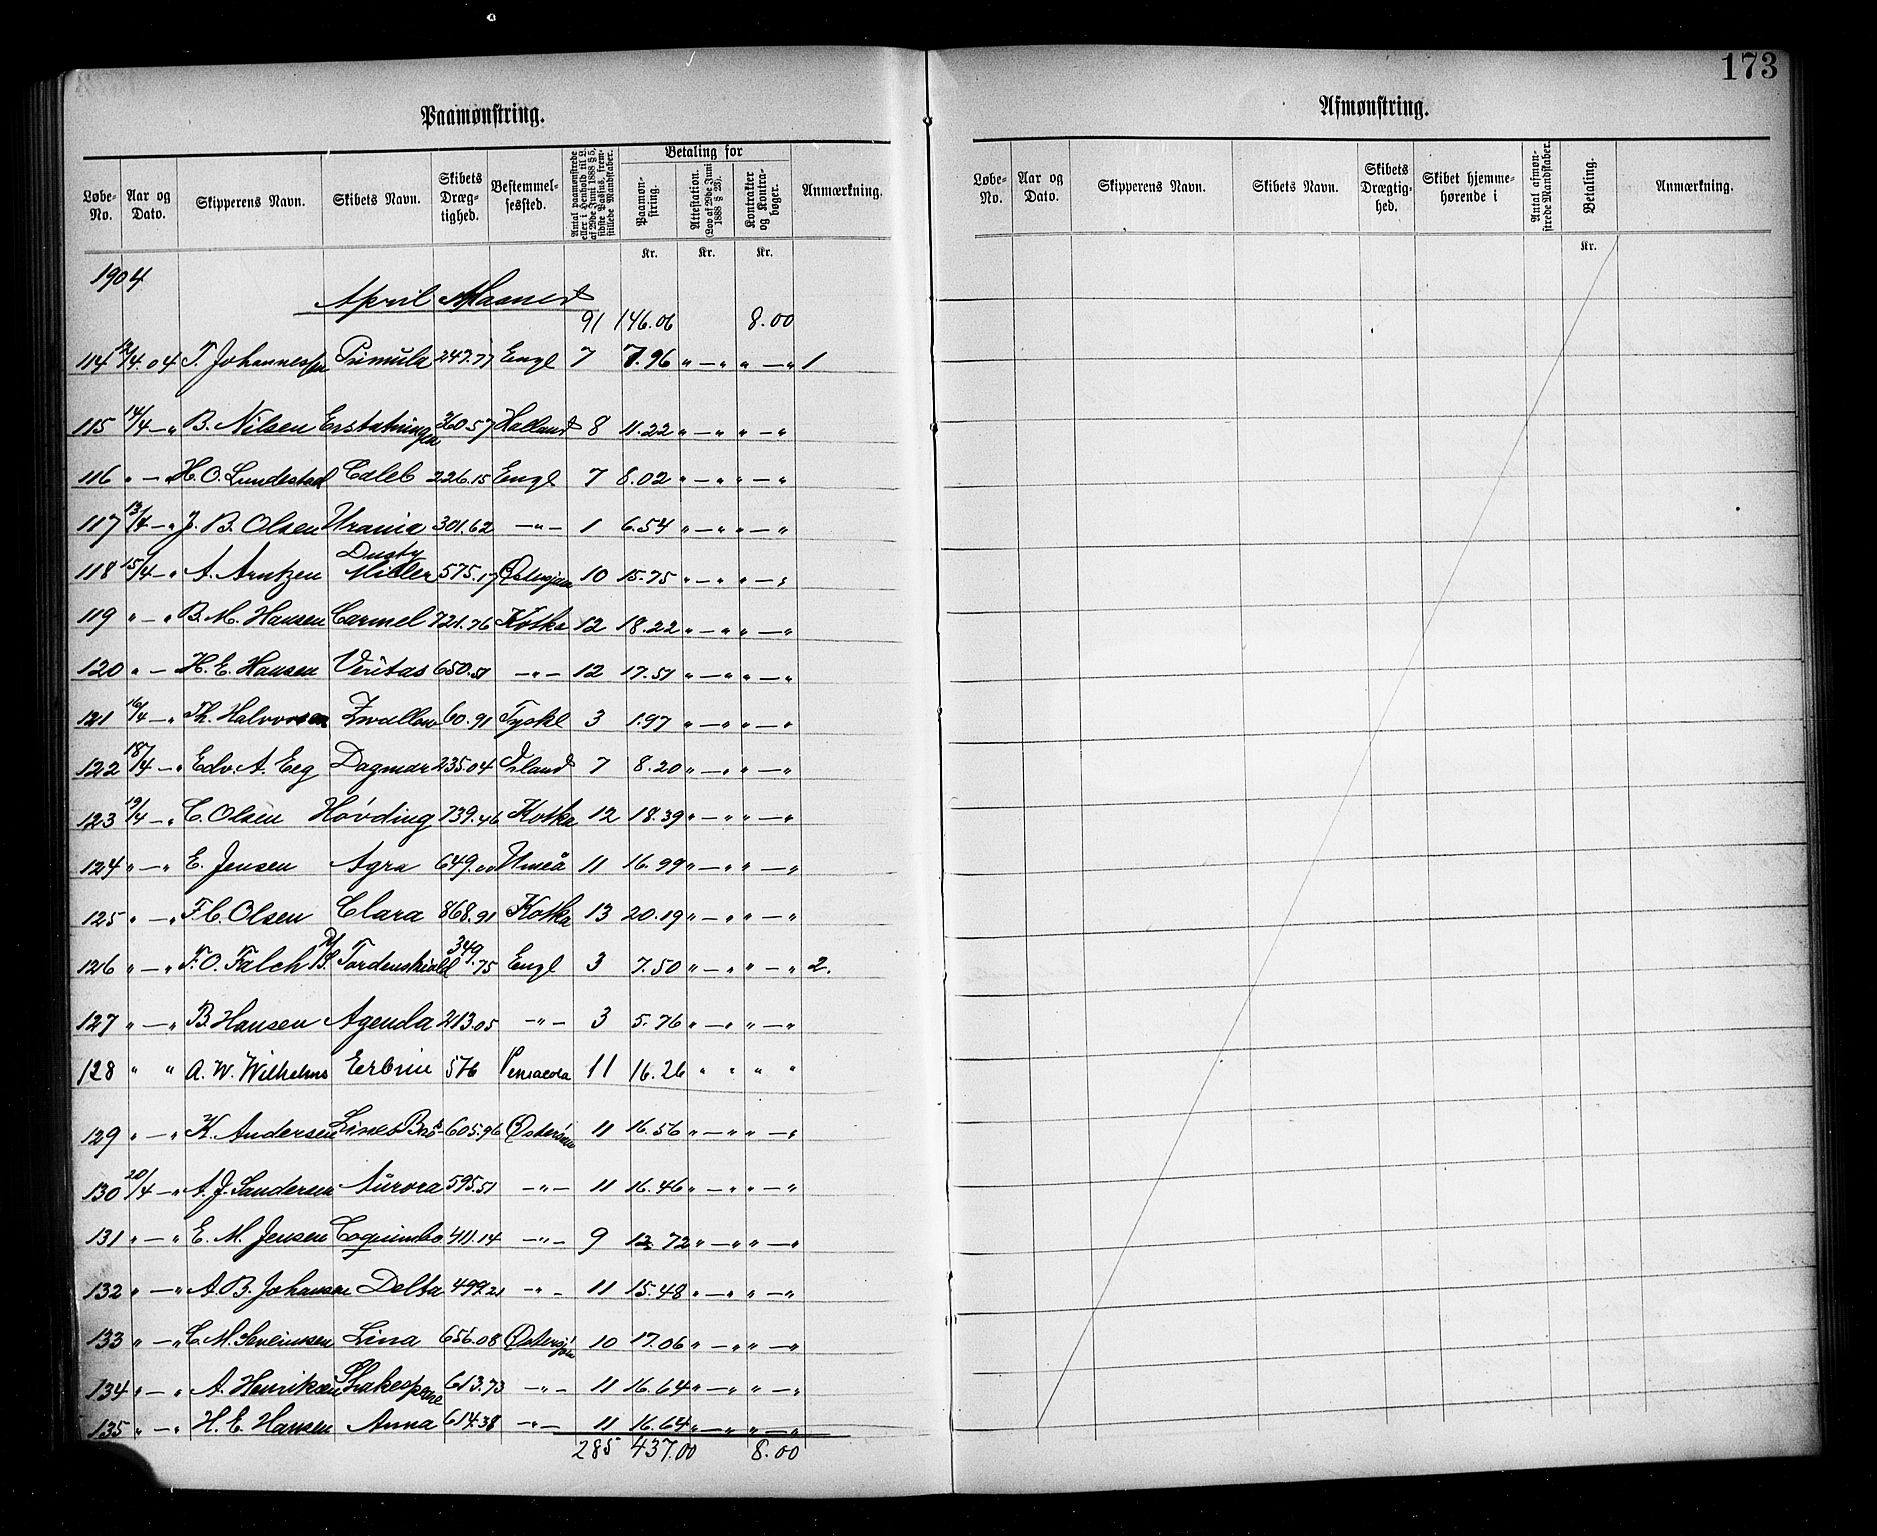 173
Paamønstring.
Løbe-No. Aar og Dato. Skipperens Navn. Skibets Navn. Skibets Dræg-tighed. Bestemmel-sessted. Antal paamønstrede eller i Henhold til L. af 29de Juni 1888 § 5, sidste Passus, frem-stillede Mandskaber. Betaling for Paamøn-string. Attestation. (Lov af 29de Juni 1888 § 23). Kontrakter og Kontra-bøger. Anmærkning.
Kr. Kr. Kr.
1904
April Maaned
91 146.06 8.00
114 12/4.04 T. Johannessen Primula 247.77 Engl 7 7.96 " — " " — " 1
115 14/4 — " B. Nilsen Erstatningen 360.57 Holland 8 11.22 " — " " — "
116 " — " H. O. Lundestad Caleb 226.15 Engl 7 8.02 " — " " — "
117 13/4 — " J. B. Olsen Urania 301.62 — " — 1 6.54 " — " " — "
118 15/4 — " A. Arntzen Dusty Miller 575.17 Østersjøen 10 15.75 " — " " — "
119 " — " B. M. Hansen Carmel 721.76 Kotka 12 18.22 " — " " — "
120 " — H. E. Hansen Veritas 650.51 — " — 12 17.51 " — " " — "
121 16/4 — " Th. Halvorsen Zwallow 60.91 Tyskl 3 1.97 " — " " — "
122 18/4 — " Edv. A. Eeg Dagmar 235.04 Island 7 8.20 " — " " — "
123 19/4 — " C. Olsen Høvding 739.46 Kotka 12 18.39 " — " " — "
124 " — " E. Jensen Agra 649.00 Umeå 11 16.99 " — " " — "
125 " — " F. C. Olsen Clara 868.91 Kotka 13 20.19 " — " " — "
126 " — " F. O. Falch D/S. Tordenskiold 349.75 Engl 3 7.50 " — " " — " 2.
127 " — " B. Hansen Agenda 213.05 — " — 3 5.76 " — " " — "
128 " " A. W. Wilhelms 576 Pensacola 11 16.26 " " " "
129 " — " K. Andersen 605.96 11 16.56 " — " " — "
130 20/4 — " A. J. Sandersen Aurora 595.51 — " — 11 16.46 " — " " — "
131 " — " E. M. Jensen Coquimbo 411.14 — " — 9 12.72 " — " " — "
132 " — " A. B. Johansen Delta 499.21 — " — 11 15.48 " — " " — "
133 " — " C. M. Severinsen Lina 656.08 Østersjøen 10 17.06 " — " " — "
134 " — " A. Henriksen Shakespeare 613.73 — " — 11 16.64 " — " " — "
135 " — " H. E. Hansen Anna 614.38 — " — 11 16.64 " — " " — "
285 437.00 8.00
Afmønstring.
Løbe-No. Aar og Dato. Skipperens Navn. Skibets Navn. Skibets Drægtig-hed. Skibet hjemme-hørende i Antal afmøn-strede Mandskaber. Betaling. Anmærkning.
Kr.